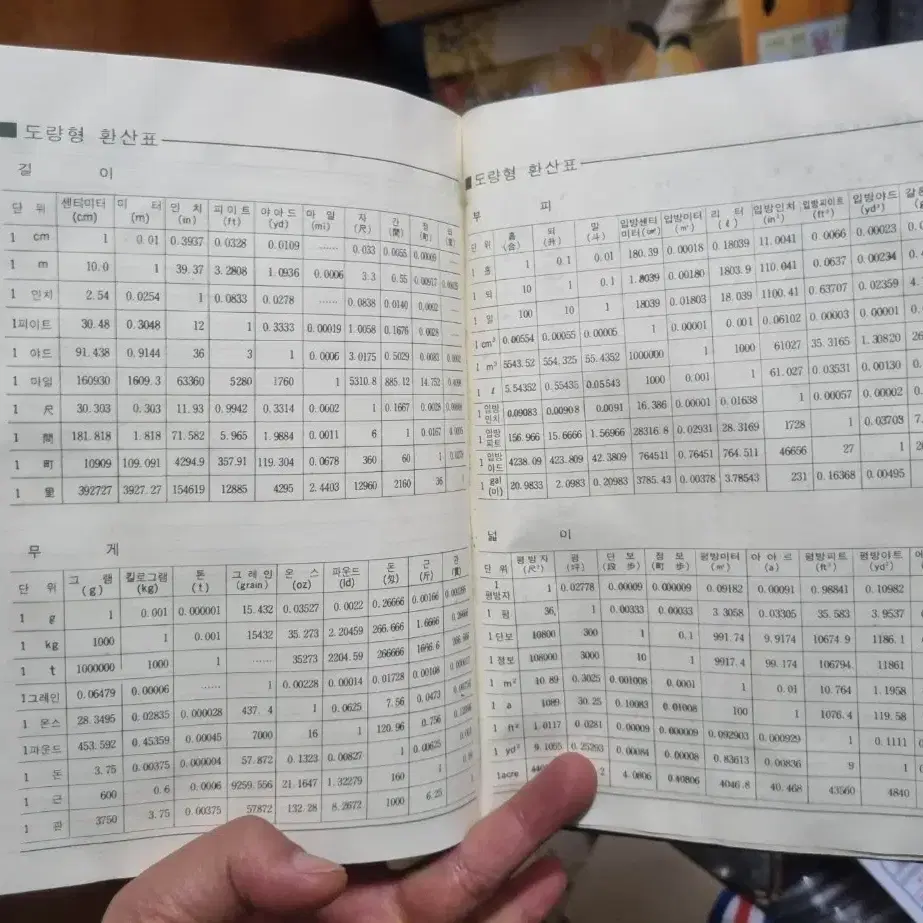 ■도량형 환산표
길 이
단 위 센티미터(cm) 미 터(m) 인 치(in) 피이트(ft) 야아드(yd) 마 일(mi) 자(尺) 간(間) 정(町)
1 cm 1 0.01 0.3937 0.0328 0.0109 ...... 0.033 0.0055 0.00009
1 m 10.0 1 39.37 3.2808 1.0936 0.0006 3.3 0.55 0.00917
1 인치 2.54 0.0254 1 0.0833 0.0278 ...... 0.0838 0.0140 0.0002
1피이트 30.48 0.3048 12 1 0.3333 0.00019 1.0058 0.1676 0.0028
1 야드 91.438 0.9144 36 3 1 0.0006 3.0175 0.5029 0.0083
1 마일 160930 1609.3 63360 5280 1760 1 5310.8 885.12 14.752
1 尺 30.303 0.303 11.93 0.9942 0.3314 0.0602 1 0.1667 0.0028
1 間 181.818 1.818 71.582 5.965 1.9884 0.0011 6 1 0.0167
1 町 10909 109.091 4294.9 357.91 119.304 0.0678 360 60 1
1 里 392727 3927.27 154619 12885 4295 2.4403 12960 2160 36 1
무 게
단 위 그 램(g) 킬로그램(kg) 톤(t) 그레인(grain) 온 스(oz) 파운드(ld) 돈(匁) 근(斤) 관(貫)
1 g 1 0.001 0.000001 15.432 0.03527 0.0022 0.26666 0.00166
1 kg 1000 1 0.001 15432 35.273 2.20459 266.666 1.6666
1 t 1000000 1000 1 ...... 35273 2204.59 266666 1666.6
1그레인 0.06479 0.00006 ...... 1 0.00228 0.00014 0.01728 0.00108
1 온스 28.3495 0.02835 0.000028 437.4 1 0.0625 7.56 0.0473
1파운드 453.592 0.45359 0.00045 7000 16 1 120.96 0.756
1 돈 3.75 0.00375 0.000004 57.872 0.1323 0.00827 1 0.00625
1 근 600 0.6 0.0006 9259.556 21.1647 1.32279 160 1
1 관 3750 3.75 0.00375 57872 132.28 8.2672 1000 6.25 1
■도량형 환산표
부 피
단 위 홉(合) 되(升) 말(斗) 입방센티미터(㎤) 입방미터(㎥) 리 터(ℓ) 입방인치(in³) 입방피이트(ft³) 입방야드(yd³)
1 홉 1 0.1 0.01 180.39 0.00018 0.18039 11.0041 0.0066 0.00023
1 되 10 1 0.1 1.8039 0.00180 1803.9 110.041 0.0637 0.00234
1 말 100 10 1 18039 0.01803 18.039 1100.41 0.63707 0.02359
1 cm³ 0.00554 0.00055 0.00005 1 0.00001 0.001 0.06102 0.00003 0.00001
1 m³ 5543.52 554.325 55.4352 1000000 1 1000 61027 35.3165 1.30820
1 ℓ 5.54352 0.55435 0.05543 1000 0.001 1 61.027 0.03531 0.00130
1 입방인치 0.09083 0.00908 0.0091 16.386 0.00001 0.01638 1 0.00057 0.00002
1 입방피트 156.966 15.6666 1.56966 28316.8 0.02931 28.3169 1728 1 0.03703
1 입방야드 4238.09 423.809 42.3809 764511 0.76451 764.511 46656 27 1
1 gal(미) 20.9833 2.0983 0.20983 3785.43 0.00378 3.78543 231 0.16368 0.00495
넓 이
단 위 평방자(尺²) 평(坪) 단 보(段 步) 정 보(町 步) 평방미터(㎡) 아아르(a) 평방피트(ft²) 평방야트(yd²)
1 평방자 1 0.02778 0.00009 0.000009 0.09182 0.00091 0.98841 0.10982
1 평 36, 1 0.00333 0.00033 3.3058 0.03305 35.583 3.9537
1단보 10800 300 1 0.1 991.74 9.9174 10674.9 1186.1
1정보 108000 3000 10 1 9917.4 99.174 106794 11861
1 m² 10.89 0.3025 0.001008 0.0001 1 0.01 10.764 1.1958
1 a 1089 30.25 0.10083 0.01008 100 1 1076.4 119.58
1 ft² 1.0117 0.0281 0.00009 0.000009 0.092903 0.000929 1 0.1111
1 yd² 9.1055 0.25293 0.00084 0.00008 0.83613 0.00836 9 1
1acre 4.0806 0.40806 4046.8 40.468 43560 4840